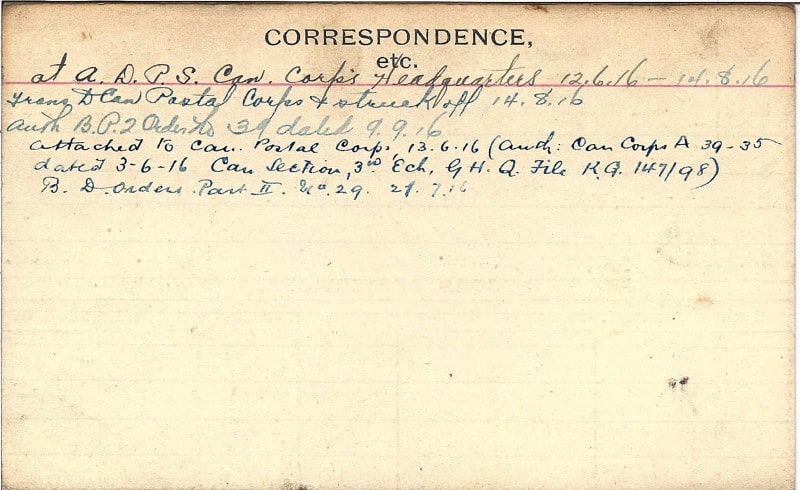 CORRESPONDENCE,
etc.
at A. D. P. S. Can. Corps Headquarters 12.6.16 – 14.8.16
Trans to Can Postal Corps & struck off 14.8.16
auth B.P.2 Order No 39 dated 9.9.16
attached to Can. Postal Corps. 13.6.16 (Auth: Can Corps A 39-35
dated 3-6-16 Can Section, 3rd Ech, G H. Q. File K.Q. 147/98)
B. D. Orders Part II. No. 29. 27.7.16